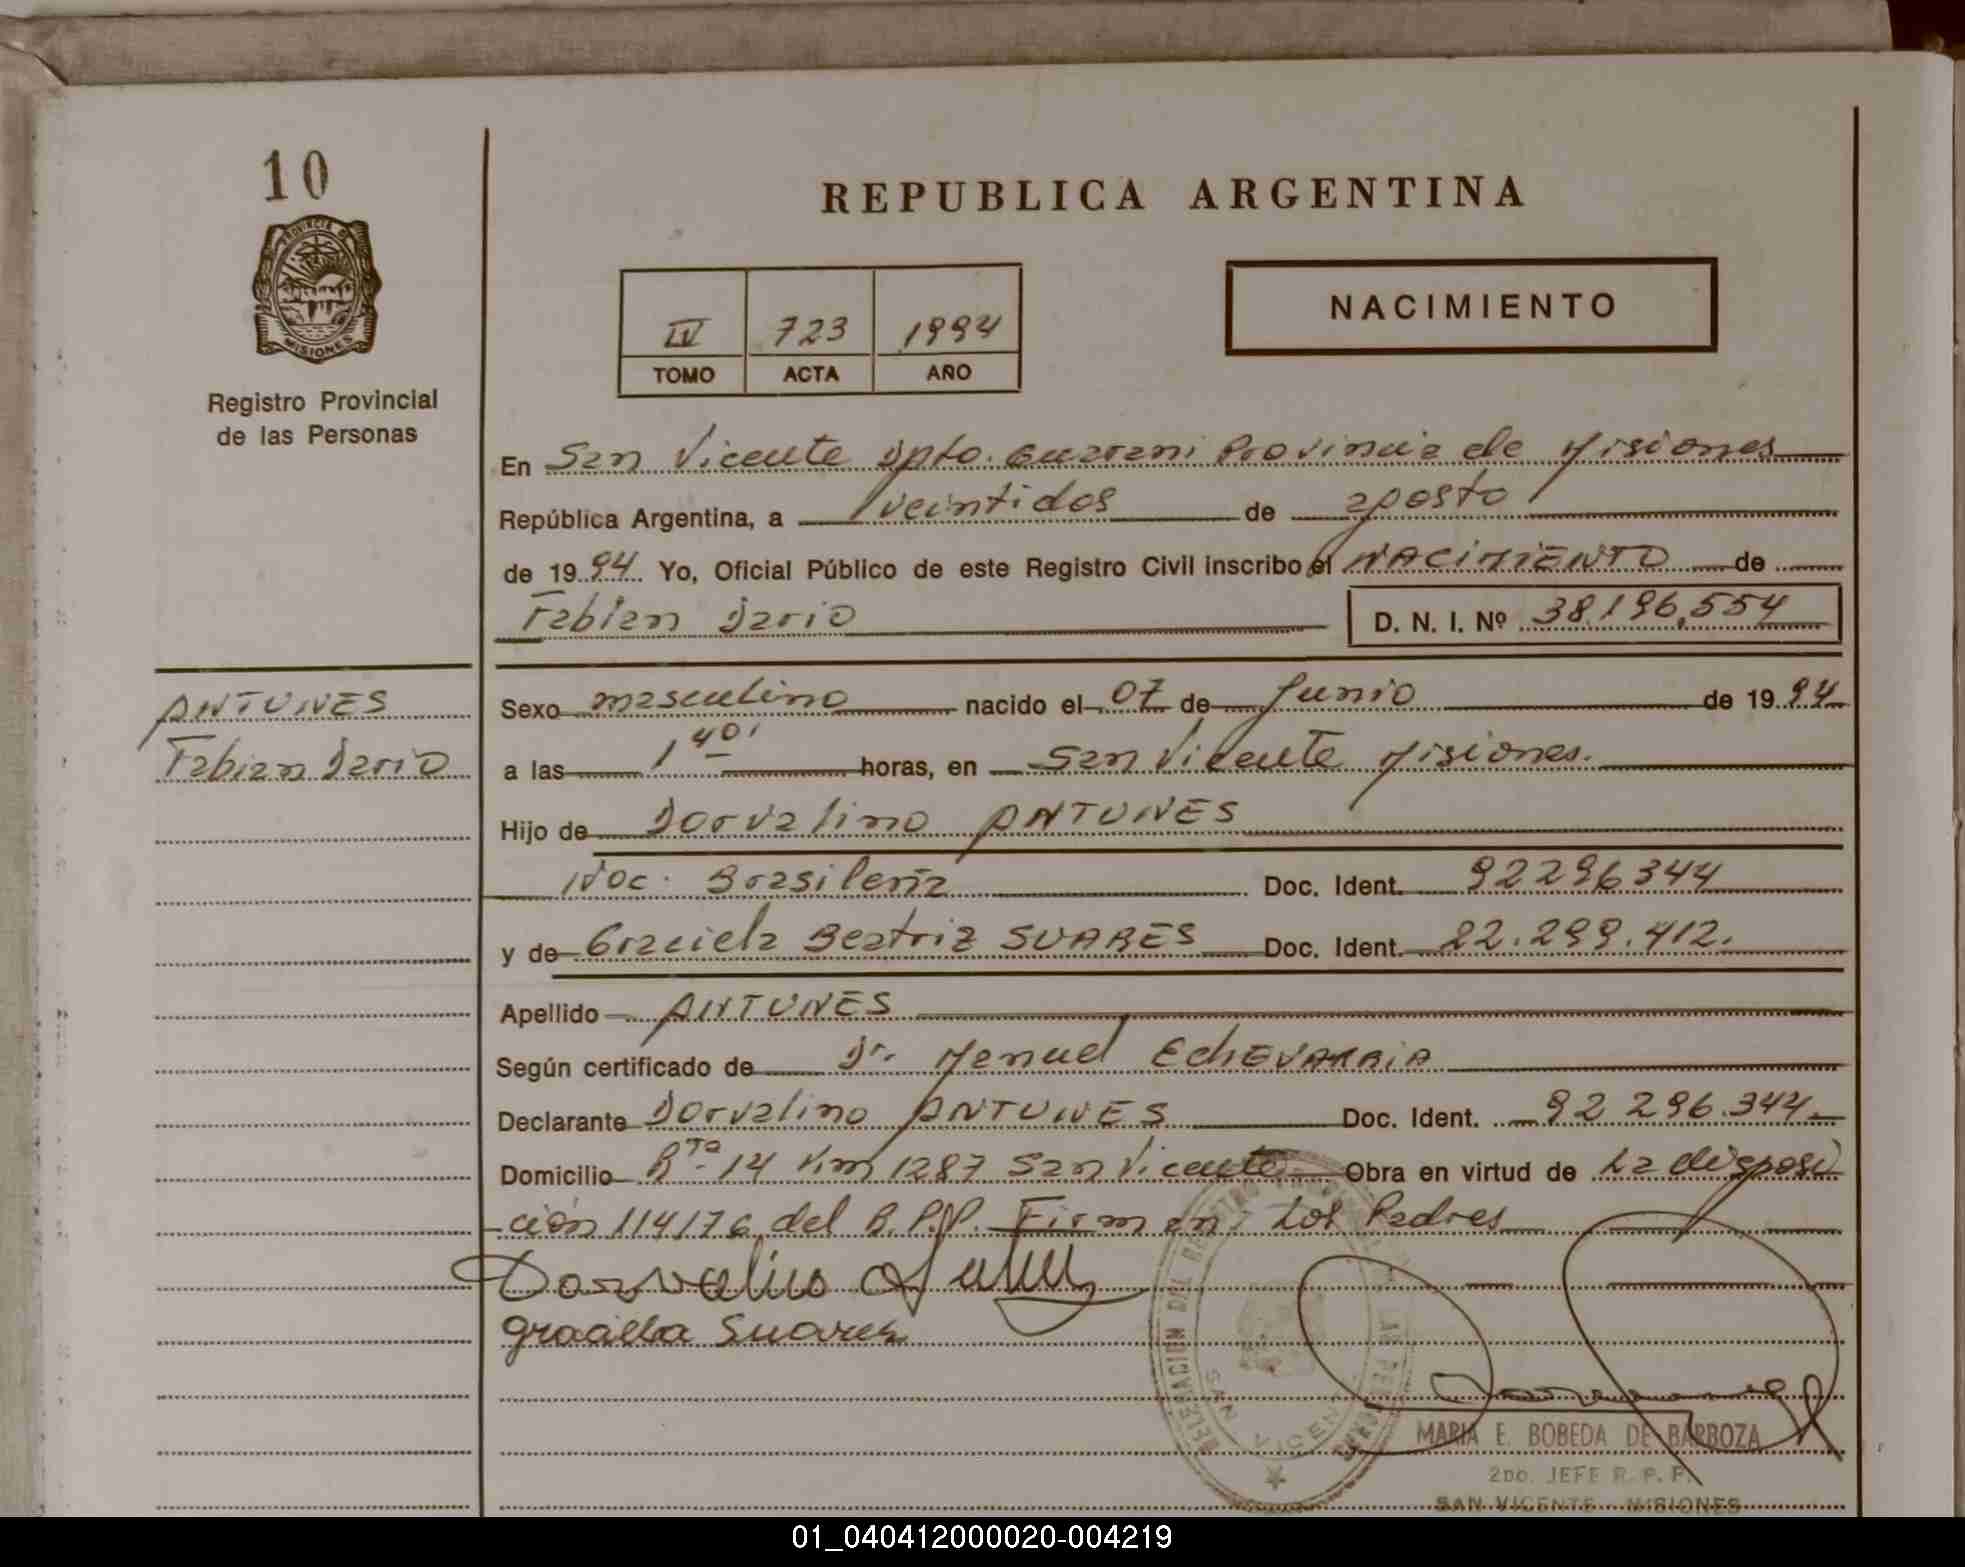 10
PROVINCIA DE
MISIONES
Registro Provincial
de las Personas
REPUBLICA ARGENTINA
IV 723 1994
TOMO ACTA AÑO
NACIMIENTO
En San Vicente Dpto. Guarani Provincia de Misiones
República Argentina, a veintidos de agosto
de 1994 Yo, Oficial Público de este Registro Civil inscribo el NACIMIENTO de
Fabian Dario D. N. I. Nº 38.196.554
ANTUNES
Fabian Dario
Sexo masculino nacido el 07 de Junio de 1994
a las 1 40' horas, en San Vicente Misiones.
Hijo de Dorvalino ANTUNES
Nac. Brasileña Doc. Ident. 92296344
y de Graciela Beatriz SUARES Doc. Ident. 22.299.412.
Apellido ANTUNES
Según certificado de Dr. Manuel EChEVARRiA
Declarante Dorvalino ANTUNES Doc. Ident. 92 296.344
Domicilio Rta. 14 Km 1287 San Vicente Obra en virtud de La disposi
ción 114/76 del R.P.P. Firman: Los Padres
Dorvalino Antunes
graciela Suares
DELEGACION DEL REGISTRO PROVINCIAL DE LAS PERSONAS
SAN VICENTE
MARIA E. BOBEDA DE BARBOZA
2DO. JEFE R. P. P.
SAN VICENTE - MISIONES
01_040412000020-004219